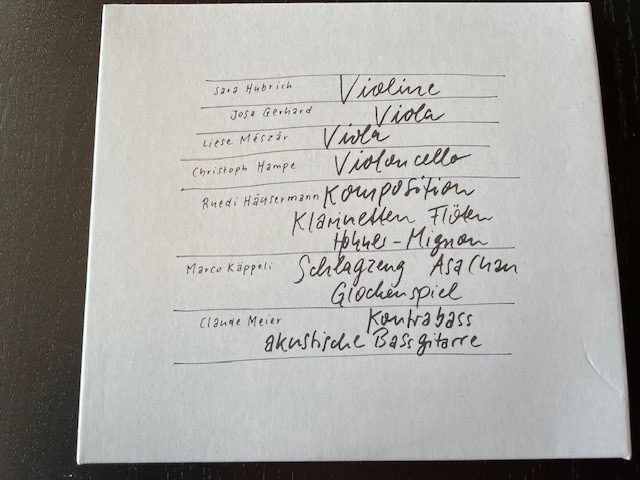 Sara Hubrich Violine
Josa Gerhard Viola
Liese Mészár Viola
Christoph Hampe Violoncello
Ruedi Häusermann Komposition
Klarinetten Flöten
Hohner-Mignon
Marco Käppeli Schlagzeug Asa Chan
Glockenspiel
Claude Meier Kontrabass
akustische Bassgitarre